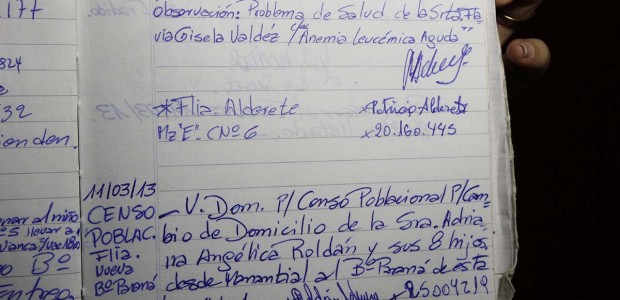 177
824
32
enden.
Observación: Problema de Salud de la Srta. Fla
via Gisela Valdéz c/"Anemia Leucémica Aguda"
*Flia. Alderete
Mz "E" C Nº 6
x Patricio Alderete
x 20.160.445
nar al niño
es llevar a
o Bº
11/03/13
CENSO
POBLAC.
Flia.
nueva
Bº Paraná
- V. Dom. P/ Censo Poblacional P/Cam=
bio de Domicilio de la Sra. Adria=
na Angélica Roldán y sus 8 hijos,
desde Manantial al Bº Paraná de ésta
x 25004219